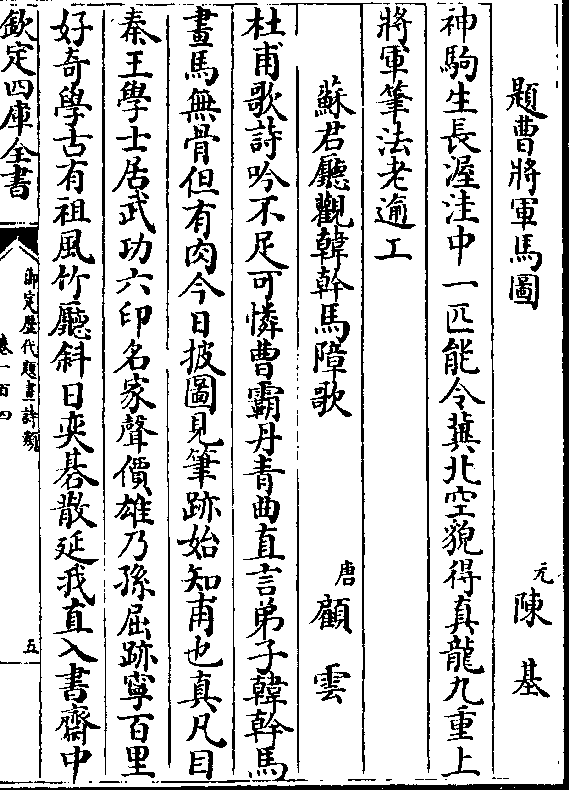 題曹將軍馬圖 元 陳基
神駒生長渥洼中一匹能令冀北空貌得真龍九重上
將軍筆法老逾工
蘇君廳觀韓幹馬障歌 唐 顧雲
杜甫歌詩吟不足可憐曹霸丹青曲直言弟子韓幹馬
畫馬無骨但有肉今日披圖見筆跡始知甫也真凡目
秦王學士居武功六印名家聲價雄乃孫屈跡寧百里
好奇學古有祖風竹廳斜日奕碁散延我直入書齋中
欽定四庫全書
御定歷代題畫詩類
卷一百四
五